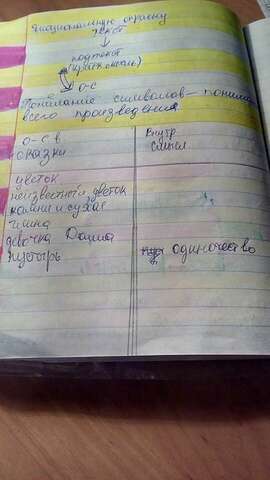 эмоциональную окраску
текст
подтекст
о-с
Понимание символов - понима
всего произведения
о-с в
сказки
внутр.
смысл
цветок
неизвестный цветок
камни и сухая
глина
девочка Даша
пустырь
одиночество